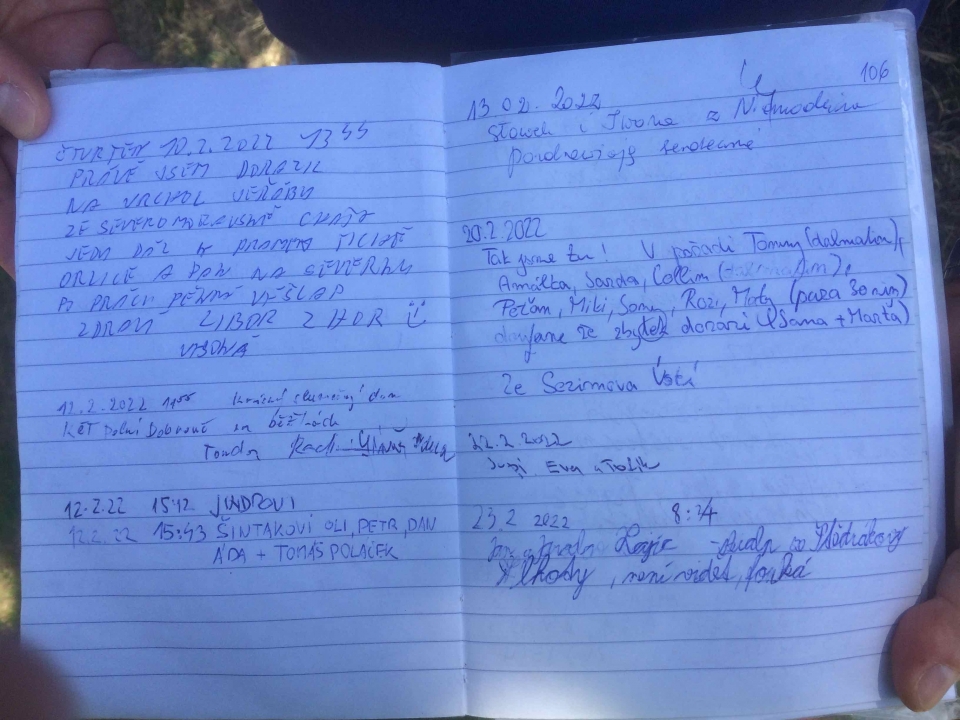 ČTVRTEK 10.2.2022 13 55
PRÁVĚ JSEM DORAZIL
NA VRCHOL JEŘÁBU
ZE SEVEROMORAVSKÉ CHATY
JEDU DÁL K PRAMENI TICHÉ
ORLICE A PAK NA SEVERKU
PO PRÁCI PĚKNÝ VÝŠLAP
ZDRAVÍ LIBOR Z HOR
12.2.2022 Krásný slunečný den
KČT Dolní Dobrouč na běžkách
Tonda
12.2.22 15:12 JINDROVI
12.2.22 15:43 ŠINTÁKOVI OLI, PETR, DAN
ÁĎA + TOMÁŠ POLÁČEK
106
13.02.2022
Sławek i Iwona z
pozdrawiają serdecznie
20.2.2022
Tak jsme tu! V pořadí Tommy (dalmatin),
Amálka, Sarda, Collim
Peťan, Miki, Rozi, Maty (pára 30 min)
doufáme že zbytek dorazí (Sama + Marťa)
Ze Sezimova Ústí
22.2.2022
Eva a Tolik
23.2 2022 8:24
Lejsc
, není vidět, fouká